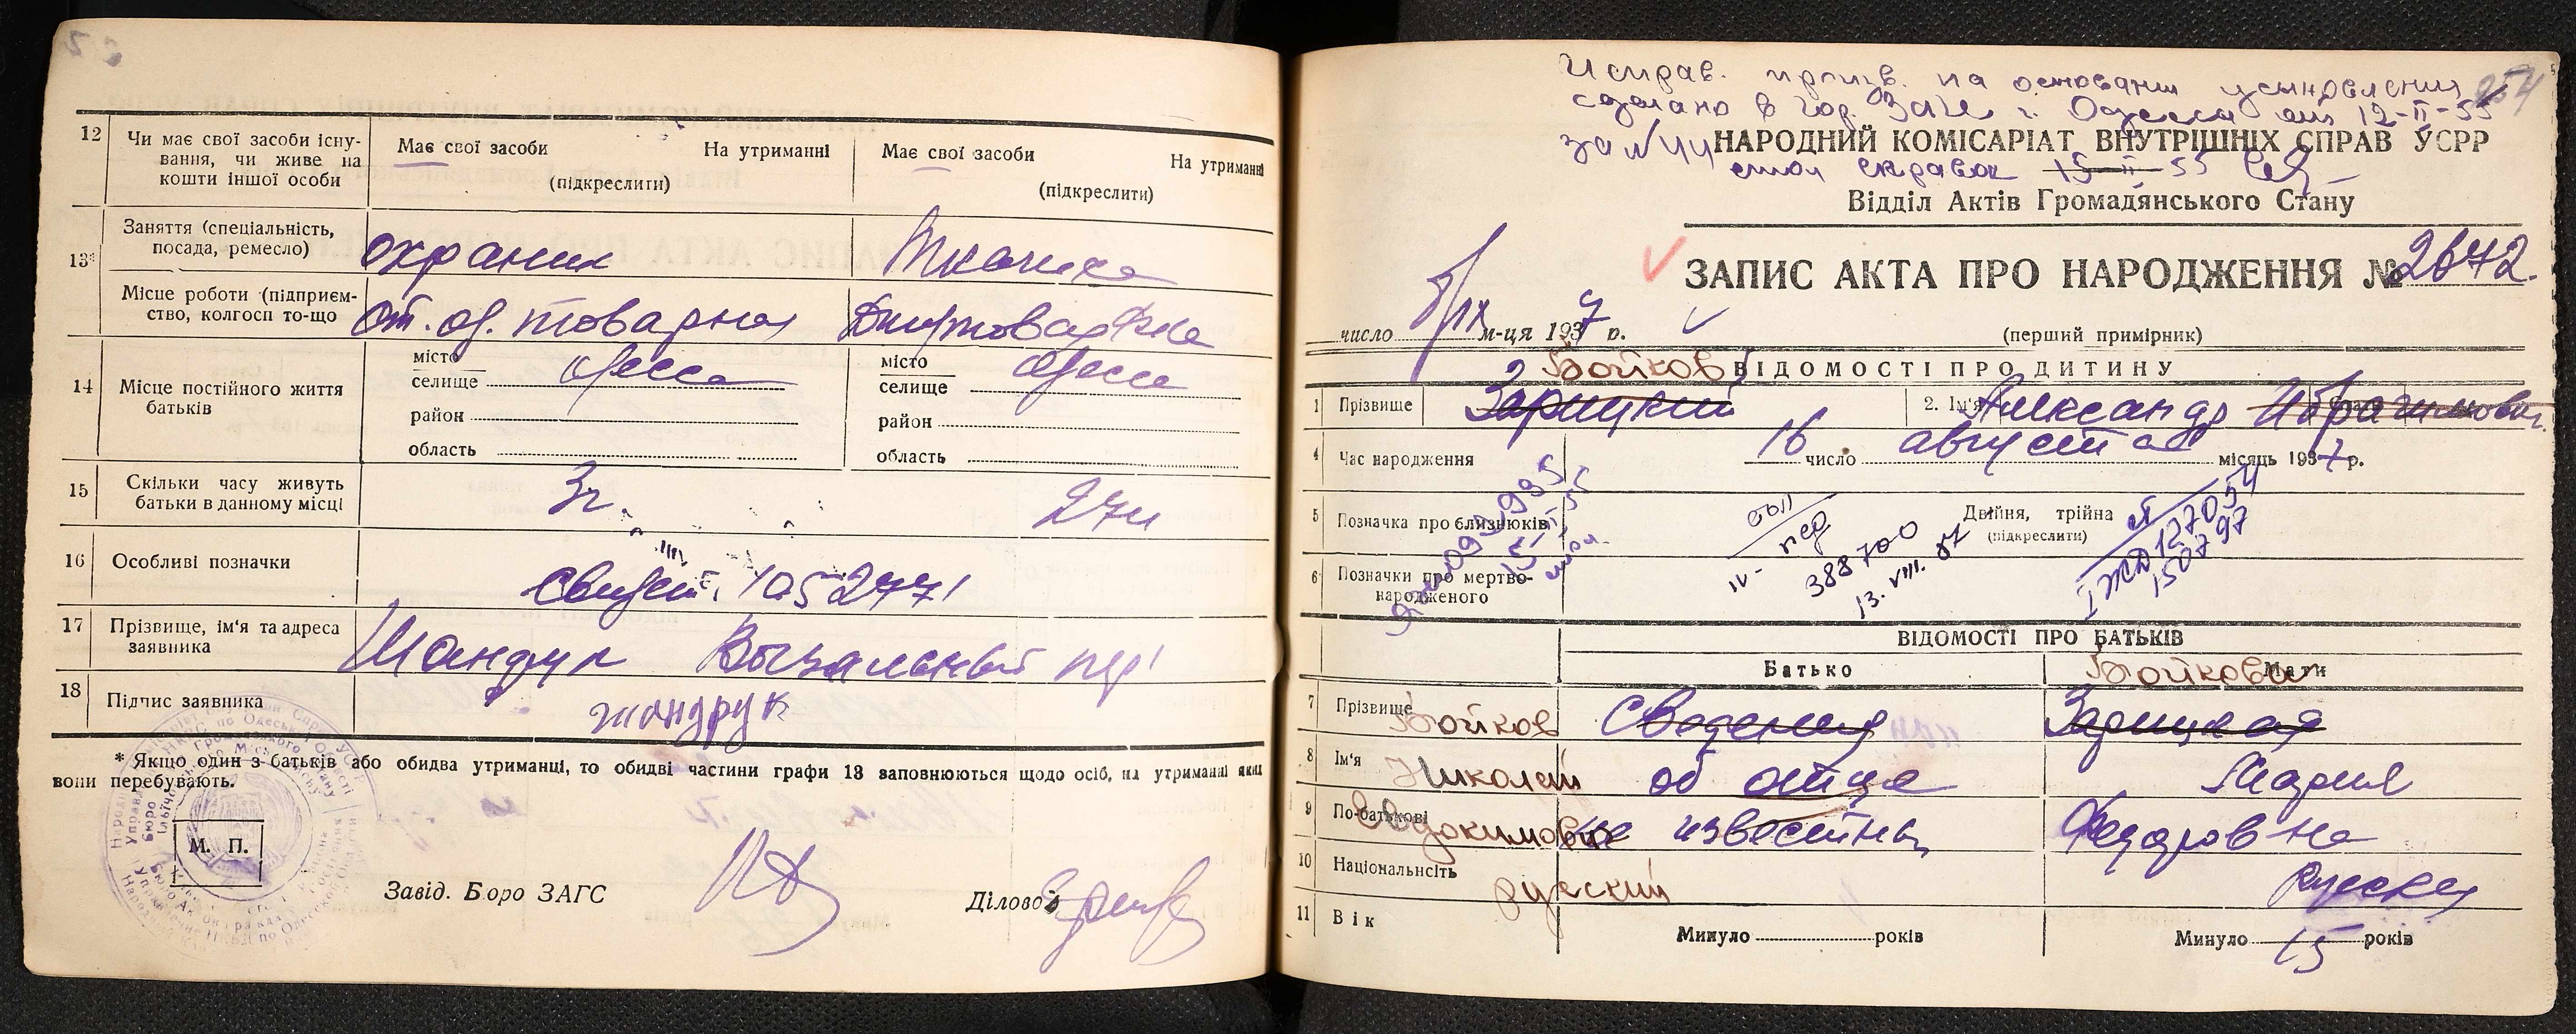 12 Чи має свої засоби існу-
вання, чи живе на
кошти іншої особи
Має свої засоби На утриманні
(підкреслити)
Має свої засоби На утриманні
(підкреслити)
13* Заняття (спеціальність,
посада, ремесло)
охраник
Місце роботи (підприєм-
ство, колгосп то-що
ст. од. товарная
14 Місце постійного життя
батьків
місто
селище Одесса
район
область
місто
селище Одесса
район
область
15 Скільки часу живуть
батьки в данному місці
3г.
16 Особливі позначки
Свидет. 1052771
17 Прізвище, ім'я та адреса
заявника
Шандрук Вокзальный пер
18 Підпис заявника
шандрук
* Якщо один з батьків або обидва утриманці, то обидві частини графи 13 заповнюються щодо осіб, на утриманні яких
вони перебувають.
М. П.
Завід. Бюро ЗАГС
Діловод
Исправ. произв. на основании усыновления
сделано в гор. ЗАГСе г. Одесса от 12-II-55
за № 44
15 II 55
254
НАРОДНИЙ КОМІСАРІАТ ВНУТРІШНІХ СПРАВ УСРР
Відділ Актів Громадянського Стану
ЗАПИС АКТА ПРО НАРОДЖЕННЯ № 2672.
число 8/IX м-ця 1937 р.
(перший примірник)
Бойков
ВІДОМОСТІ ПРО ДИТИНУ
1 Прізвище Зарицкий 2. Ім'я Александр Ибрагимович
4 Час народження 16 число августа місяць 1937 р.
5 Позначка про близнюків
Двійня, трійна
(підкреслити)
388700
13.VIII.
I ЖД 127054
150797
6 Позначки про мертво-
народженого
ВІДОМОСТІ ПРО БАТЬКІВ
Батько Мати
Бойкова
7 Прізвище Бойков Сведения Зарицкая
8 Ім'я Николай об отце Мария
9 По-батькові Евдокимович не известны Федоровна
10 Національність русский Русская
11 Вік Минуло років Минуло 15 років